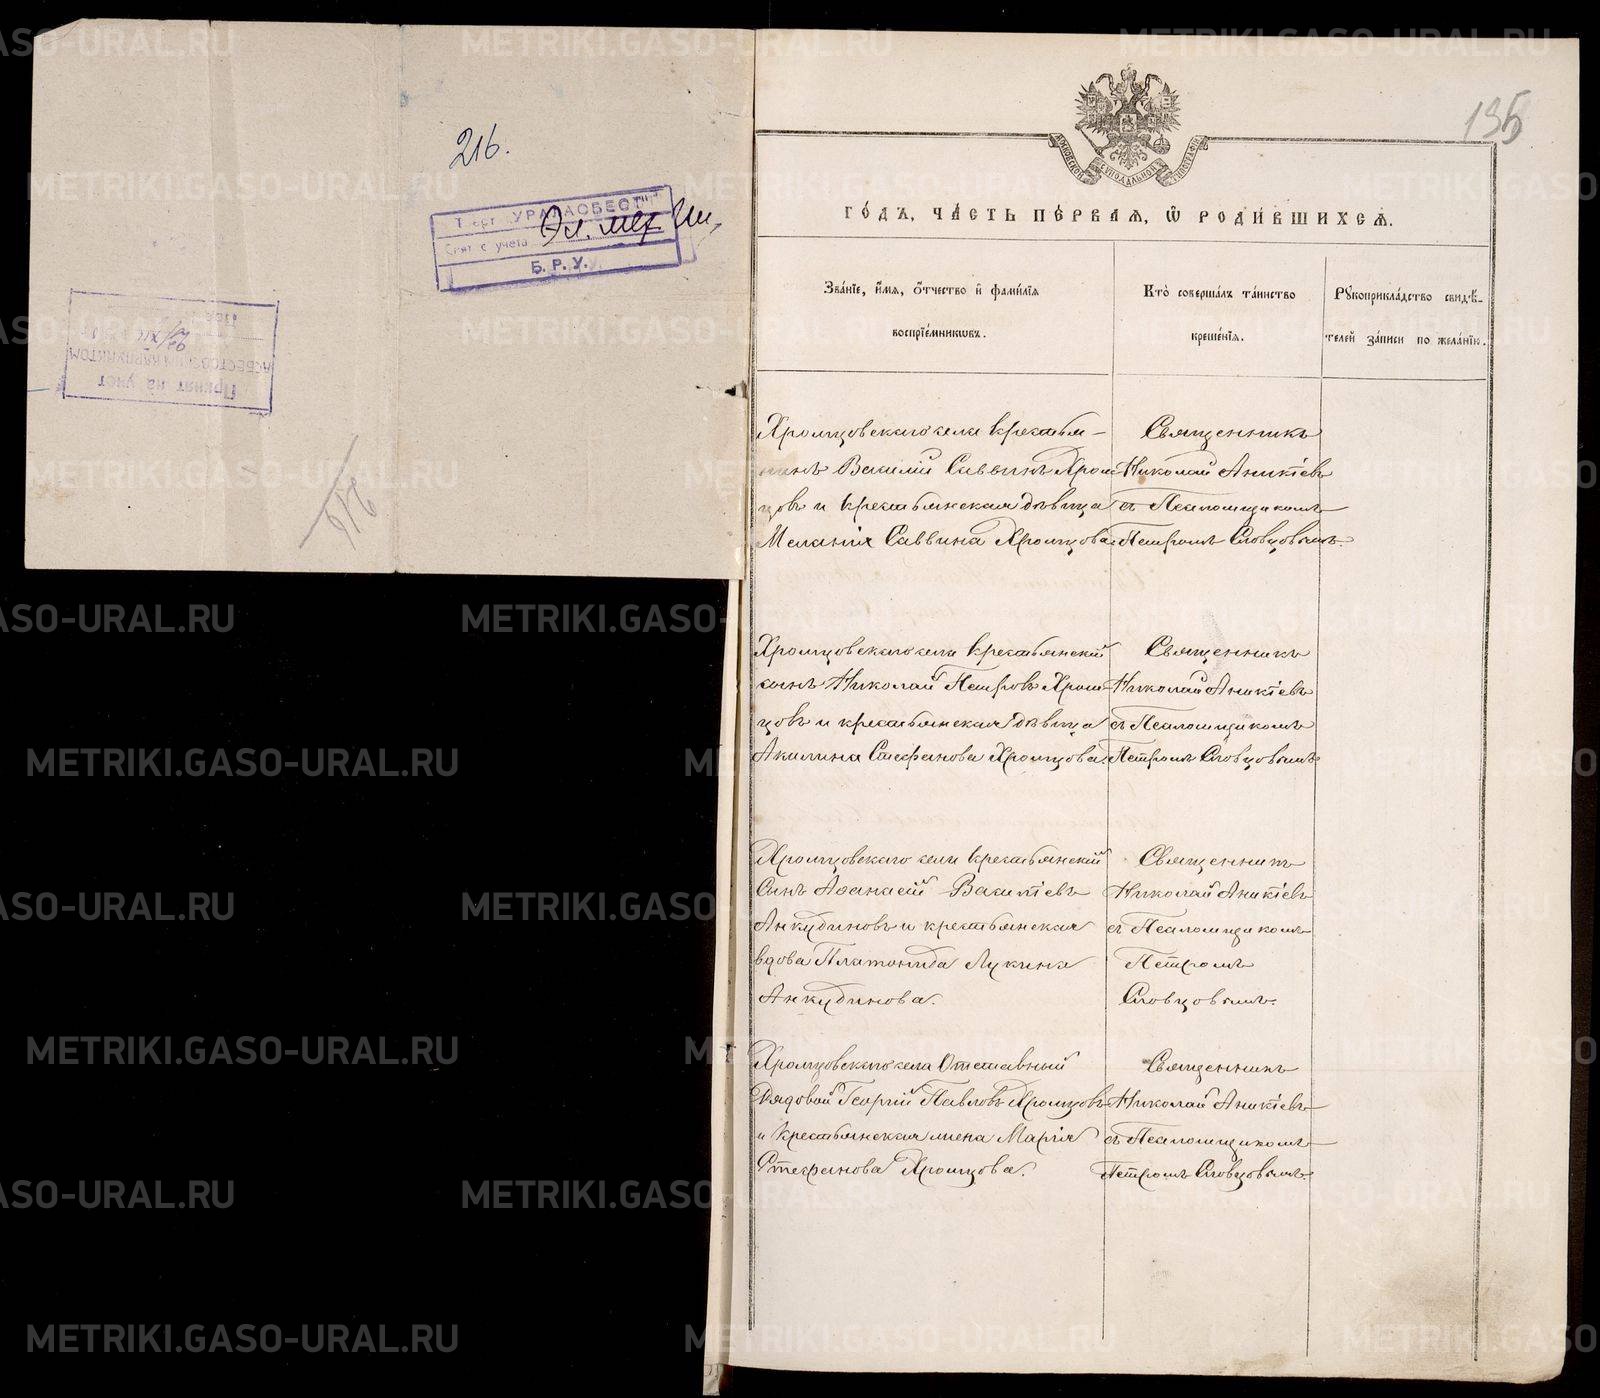 216.
Трест "УРАЛАСБЕСТ"
Снят с учета Эл. мех.
Б. Р. У.
Принят на учет
АСБЕСТОВСКИМ
216
135
МОСКОВСКОЙ СѴНОДАЛЬНОЙ ТИПОГРАФІИ
ГО́ДЪ, ЧА́СТЬ ПЕ́РВАЯ, Ѡ҆ РОДИ́ВШИХСЯ.
Зва́нїе, и҆́мѧ, ѻ҆́тчество и҆ фами́лїѧ
воспрїе́мникѡвъ.
Кто̀ соверша́лъ та́инство
креще́нїѧ.
Рꙋкоприкла́дство свидѣ́-
телей за́писи по жела́нїю.
Хромцовскаго села крестья-
нинъ Василій Саввинъ Хром
цовъ и крестьянская дѣвица
Меланія Саввина Хромцова.
Священникъ
Николай Аникіевъ
съ Псаломщикомъ
Петромъ Словцовымъ.
Хромцовскаго села крестьянскій
сынъ Николай Петровъ Хром
цовъ и крестьянская дѣвица
Акилина Стефанова Хромцова.
Священникъ
Николай Аникіевъ
съ Псаломщикомъ
Петромъ Словцовымъ
Хромцовскаго села крестьянскій
Сынъ Аѳанасій Василіевъ
Анкудиновъ и крестьянская
вдова Платонида Лукина
Анкудинова.
Священникъ
Николай Аникіевъ
съ Псаломщикомъ
Петромъ
Словцовымъ.
Хромцовскаго села Отставный
Рядовой Георгій Павловъ Хромцовъ
и крестьянская жена Марія
Стефанова Хромцова.
Священникъ
Николай Аникіевъ
съ Псаломщикомъ
Петромъ Словцовымъ.
METRIKI.GASO-URAL.RU